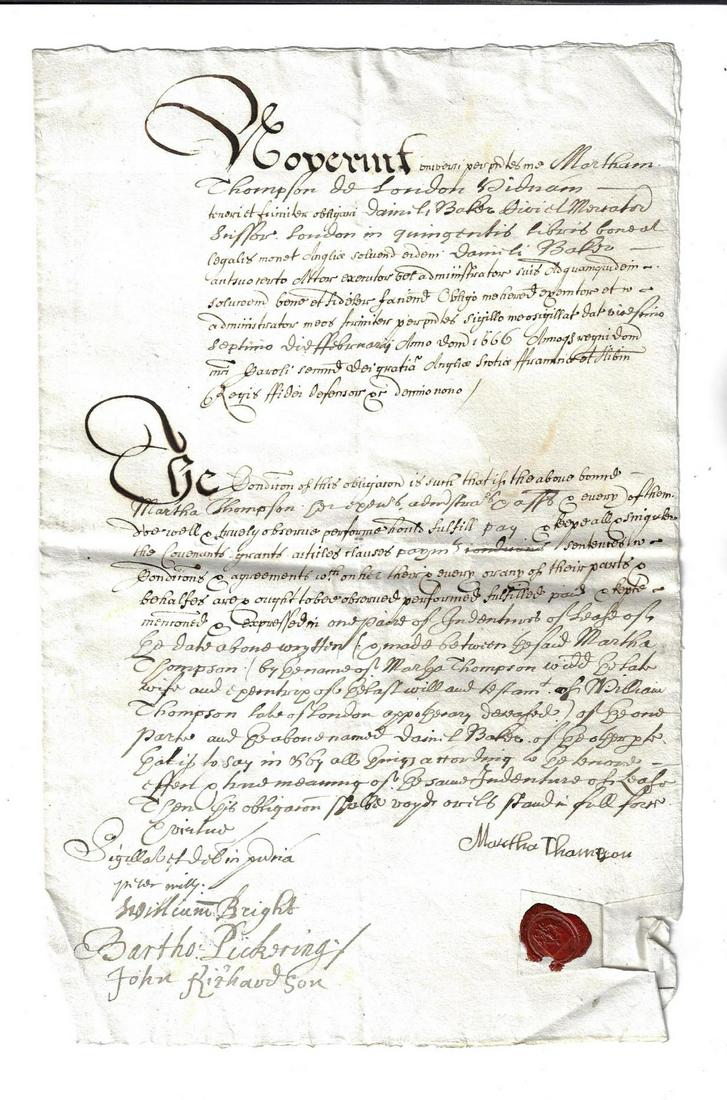 Noverint universi per pntes me Martham
Thompson de London Viduam
teneri et firmiter obligari Danieli Baker Civi et Mercator
Scissor London in quingentis libris bone et
legalis monet Angliæ solvend eidem Danieli Baker
aut suo certo Attor executor vel administrator suis Ad quamquidem
solucoem bene et fideler faciend Obligo me hered executores et
administrator meos firmiter per pntes sigillo meo sigillat dat vicesimo
septimo die ffebruarij Anno dom 1666 Annoqz regni dom
nri Caroli secundi dei gratia Angliæ Scotiæ ffranciæ et Hibnie
Regis ffidei defensor &c decimo nono
The Condition of this obligacon is such that if the above bound
Martha Thompson her execrs adminstrars & asss & every of them
doe well & truely observe performe fulfill pay & keepe all & singuler
the Covenants grants articles clauses paymts sentences
Condicons & agreements wch on her their & every or any of their parts &
behalfes are & ought to bee observed performed fulfilled paid & kepte
menconed & expressed in one paire of Indentures of Lease of
the date above wrytten & made betweene the said Martha
Thompson (by the name of Martha Thompson widd the late
wife and executrix of the last will and testamt of William
Thompson late of London appothecary deceased) of the one
Parte and the above named Daniel Baker of the other pte
that is to say in & by all things according to the tenour
effect & true meaning of the same Indenture of Lease
Then this obligacon shalbe voyd or els stand in full force
& virtue
Martha Thamson
Sigillat et delib in pncia
peter
William Bright
Bartho: Pickering
John Richardson